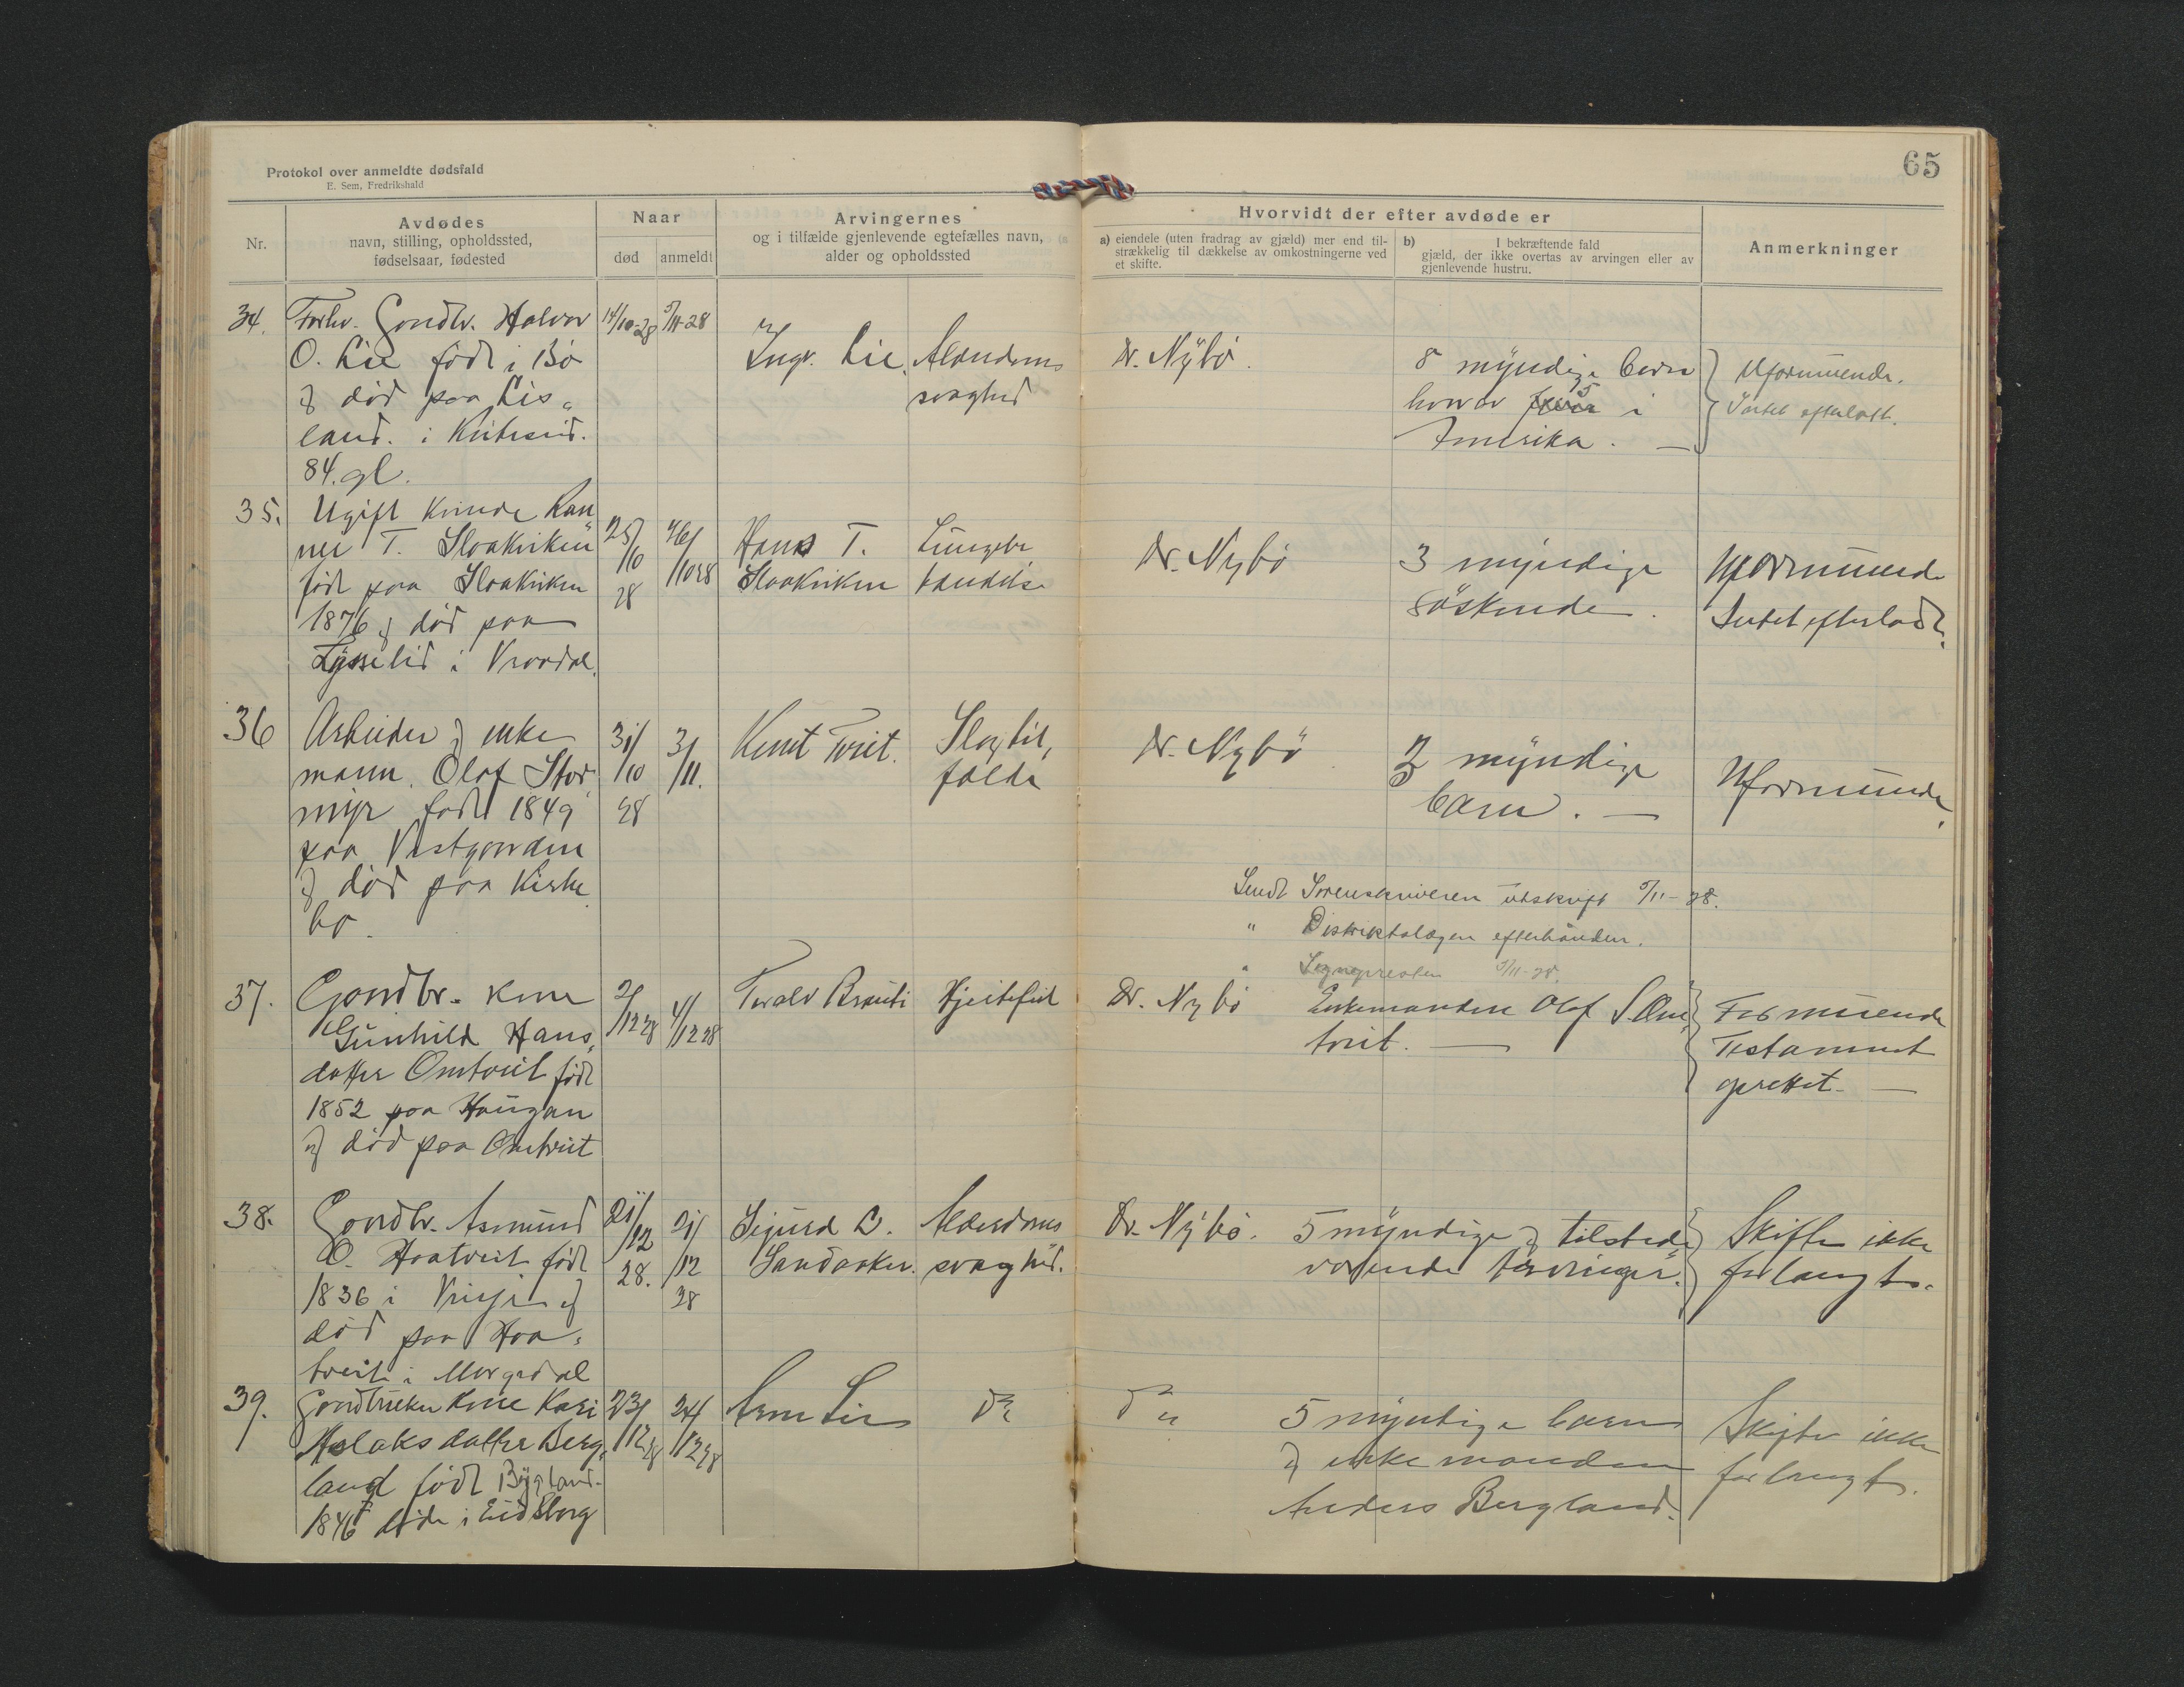 65
Protokol over anmeldte dødsfald
E. Sem, Fredrikshald
Nr.
Avdødes
navn, stilling, opholdssted,
fødselsaar, fødested
Naar
død
anmeldt
Arvingernes
og i tilfælde gjenlevende egtefælles navn,
alder og opholdssted
Hvorvidt der efter avdøde er
a) eiendele (uten fradrag av gjæld) mer end til-
strækkelig til dækkelse av omkostningerne ved
et skifte.
b) I bekræftende fald
gjæld, der ikke overtas av arvingen eller av
gjenlevende hustru.
Anmerkninger
34.
Forhv. Gaardbr. Halvor
O. Lie født i Bö
og död paa Lis„
land. i Kviteseid.
84. gl.
14/10-28
5/11-28
Ingv. Lie.
Alderdoms
svaghed
Dr. Nybö.
8 myndige barn
hvorav 5 i
Amerika. —
Uformuende.
Intet efterlatt.
35.
Ugift kvinde Ran„
nei T. Sloakviken
født paa Sloakviken
1876 og död paa
i Vraadal.
25/10
28
26/10 28
Hans T.
Sloakviken
Lungebe
tændelse
Dr. Nybö
3 myndige
söskende.
Uformuende
Intet efterladt.
36
Arbeider og enke
mann. Olaf Stor„
myr født 1849
paa Vestgaarden
og död paa Kirke
bö.
31/10
28
3/11.
Knut Tveit.
Slagtil„
fælde
Dr. Nybö
3 myndige
barn. —
Uformuende.
Sendt Sorenskriveren utskrift 5/11-28.
" Distriktslægen efterhaanden.
" Sognepresten 5/11-28.
37.
Gaardbr. kone
Gunhild Hans„
datter Omtveit født
1852 paa Haugan
og död paa Omtveit
2/12 28
4/12 28
Taralv Brauti
Hjertefeil
Dr. Nybö
Enkemanden Olaf S. Om„
tveit. —
Formuende
Testament
oprettet. —
38.
Gaardbr. Asmund
O. Haatveit født
1836 i Vinje og
död paa Haa„
tveit i Morgedal
21/12
28.
21/12
28
Sigurd O.
Sandaaker.
Alderdoms
svaghed.
Dr. Nybö.
5 myndige og tilstede
værende Arvinger.
Skifte ikke
forlangt.
39.
Gaardbruker kone Kari
Aslaksdatter Berg„
land född Bygland
1846 döde i Eidsborg
23/12 28
24/12 28
Arne Lie
Do
Do
5 myndige barn
og enkemanden
Anders Bergland.
Skifte ikke
forlangt.